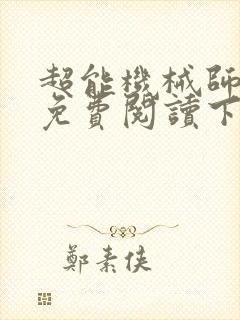 超能機械師
免費閱讀下
鄭素俠